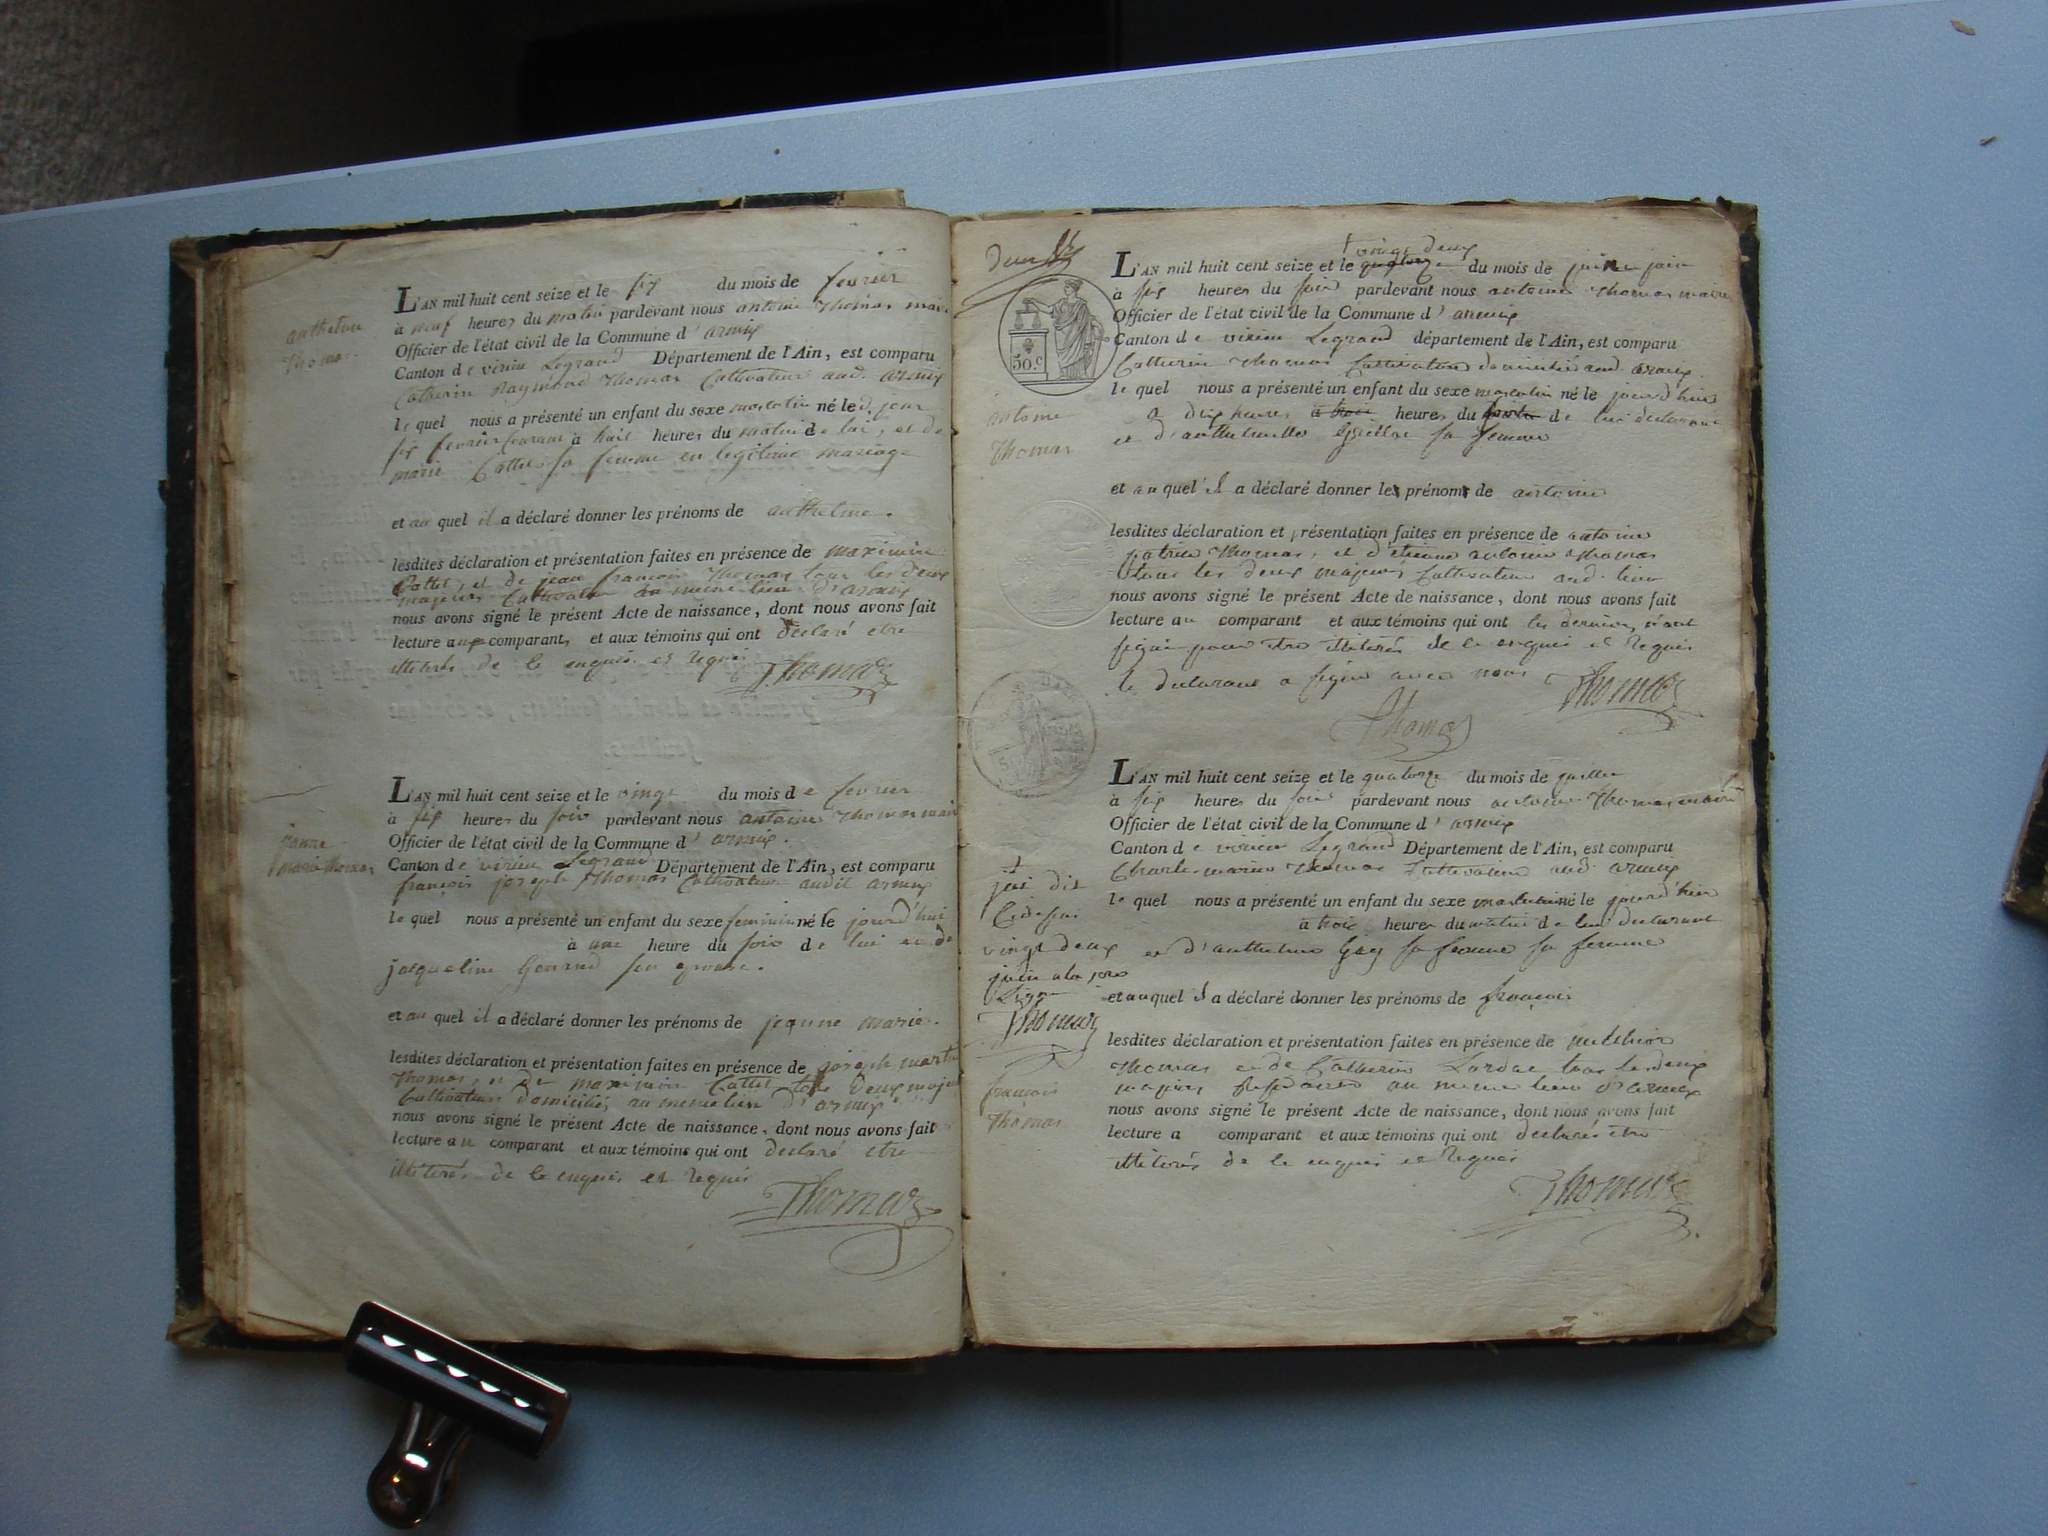 anthelme
Thomas
L'AN mil huit cent seize et le six du mois de fevrier
à neuf heures du matin pardevant nous antoine Thomas maire
Officier de l'état civil de la Commune d'armix
Canton de virieu Legrand Département de l'Ain, est comparu
Catherin Raymond Thomas Cultivateur aud. armix
le quel nous a présenté un enfant du sexe masculin né le d. jour
six fevrier courant à huit heures du matin de lui, et de
marie Cottet sa femme en legitime mariage
et au quel il a déclaré donner les prénoms de anthelme.
lesdites déclaration et présentation faites en présence de maximin
Cottet, et de jean françois Thomas tous les deux
majeurs Cultivateur au meme lieu d'armix
nous avons signé le présent Acte de naissance, dont nous avons fait
lecture aux comparant, et aux témoins qui ont declaré etre
illiterés de ce enquis et requis
Thomas
jeanne
marie thomas
L'AN mil huit cent seize et le vingt du mois de fevrier
à six heures du soir pardevant nous antoine Thomas maire
Officier de l'état civil de la Commune d'armix.
Canton de virieu Legrand Département de l'Ain, est comparu
françois joseph Thomas Cultivateur audit armix
le quel nous a présenté un enfant du sexe feminin né le jourd'hui
à une heure du soir de lui et de
jacqueline son epouse.
et au quel il a déclaré donner les prénoms de jeanne marie.
lesdites déclaration et présentation faites en présence de joseph martin
Thomas, et de maximin Cottet tous deux majeurs
Cultivateurs domiciliés au meme lieu d'armix
nous avons signé le présent Acte de naissance, dont nous avons fait
lecture au comparant et aux témoins qui ont declaré etre
illiterés de ce enquis et requis
Thomas
50.c
antoine
Thomas
vingt deux
L'AN mil huit cent seize et le quatorze du mois de juin
à six heures du soir pardevant nous antoine Thomas maire
Officier de l'état civil de la Commune d'armix
Canton de virieu Legrand département de l'Ain, est comparu
Catherin Thomas Cultivateur domicilié aud. armix.
le quel nous a présenté un enfant du sexe masculin né le jourd'hui
a dix heures à trois heures du de lui declarant
et d'anthelmette sa femme
et au quel il a déclaré donner les prénoms de antoine
lesdites déclaration et présentation faites en présence de antoine
patrice Thomas, et d'etienne antoine Thomas
tous les deux majeurs Cultivateurs aud. lieu
nous avons signé le présent Acte de naissance, dont nous avons fait
lecture au comparant et aux témoins qui ont les derniers, n'ont
signé pour etre illiterés de ce enquis et requis
le declarant a signé avec nous
Thomas
Thomas
L'AN mil huit cent seize et le quatorze du mois de juillet
à six heures du soir pardevant nous antoine Thomas maire
Officier de l'état civil de la Commune d'armix
Canton de virieu Legrand Département de l'Ain, est comparu
Charles marin Thomas Cultivateur aud. armix
le quel nous a présenté un enfant du sexe masculin né le jourd'hui
à trois heures du matin de lui declarant
et d'anthelme Gey sa femme sa femme
et auquel il a déclaré donner les prénoms de françois
lesdites déclaration et présentation faites en présence de melchior
Thomas et de Catherin tous les deux
majeurs au meme lieu d'armix
nous avons signé le présent Acte de naissance, dont nous avons fait
lecture a comparant et aux témoins qui ont declarés etre
illiterés de ce enquis et requis
Thomas
vingt deux
juin a la
Ligne
Thomas
françois
Thomas